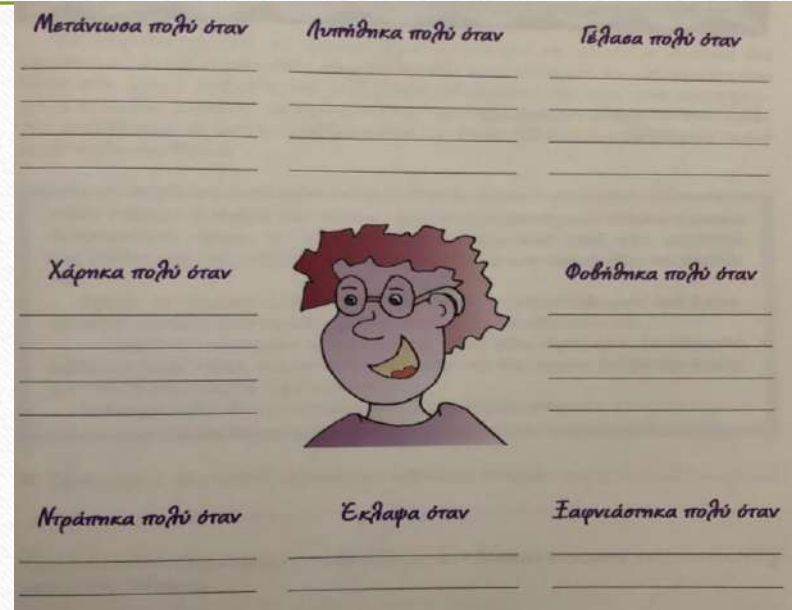 Μετάνιωσα πολύ όταν
Λυπήθηκα πολύ όταν
Γέλασα πολύ όταν
Χάρηκα πολύ όταν
Φοβήθηκα πολύ όταν
Ντράπηκα πολύ όταν
Έκλαψα όταν
Ξαφνιάστηκα πολύ όταν